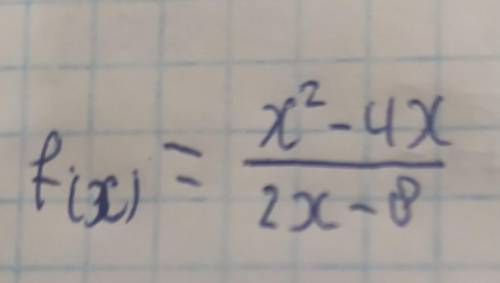 f(x) = (x² - 4x) / (2x - 8)